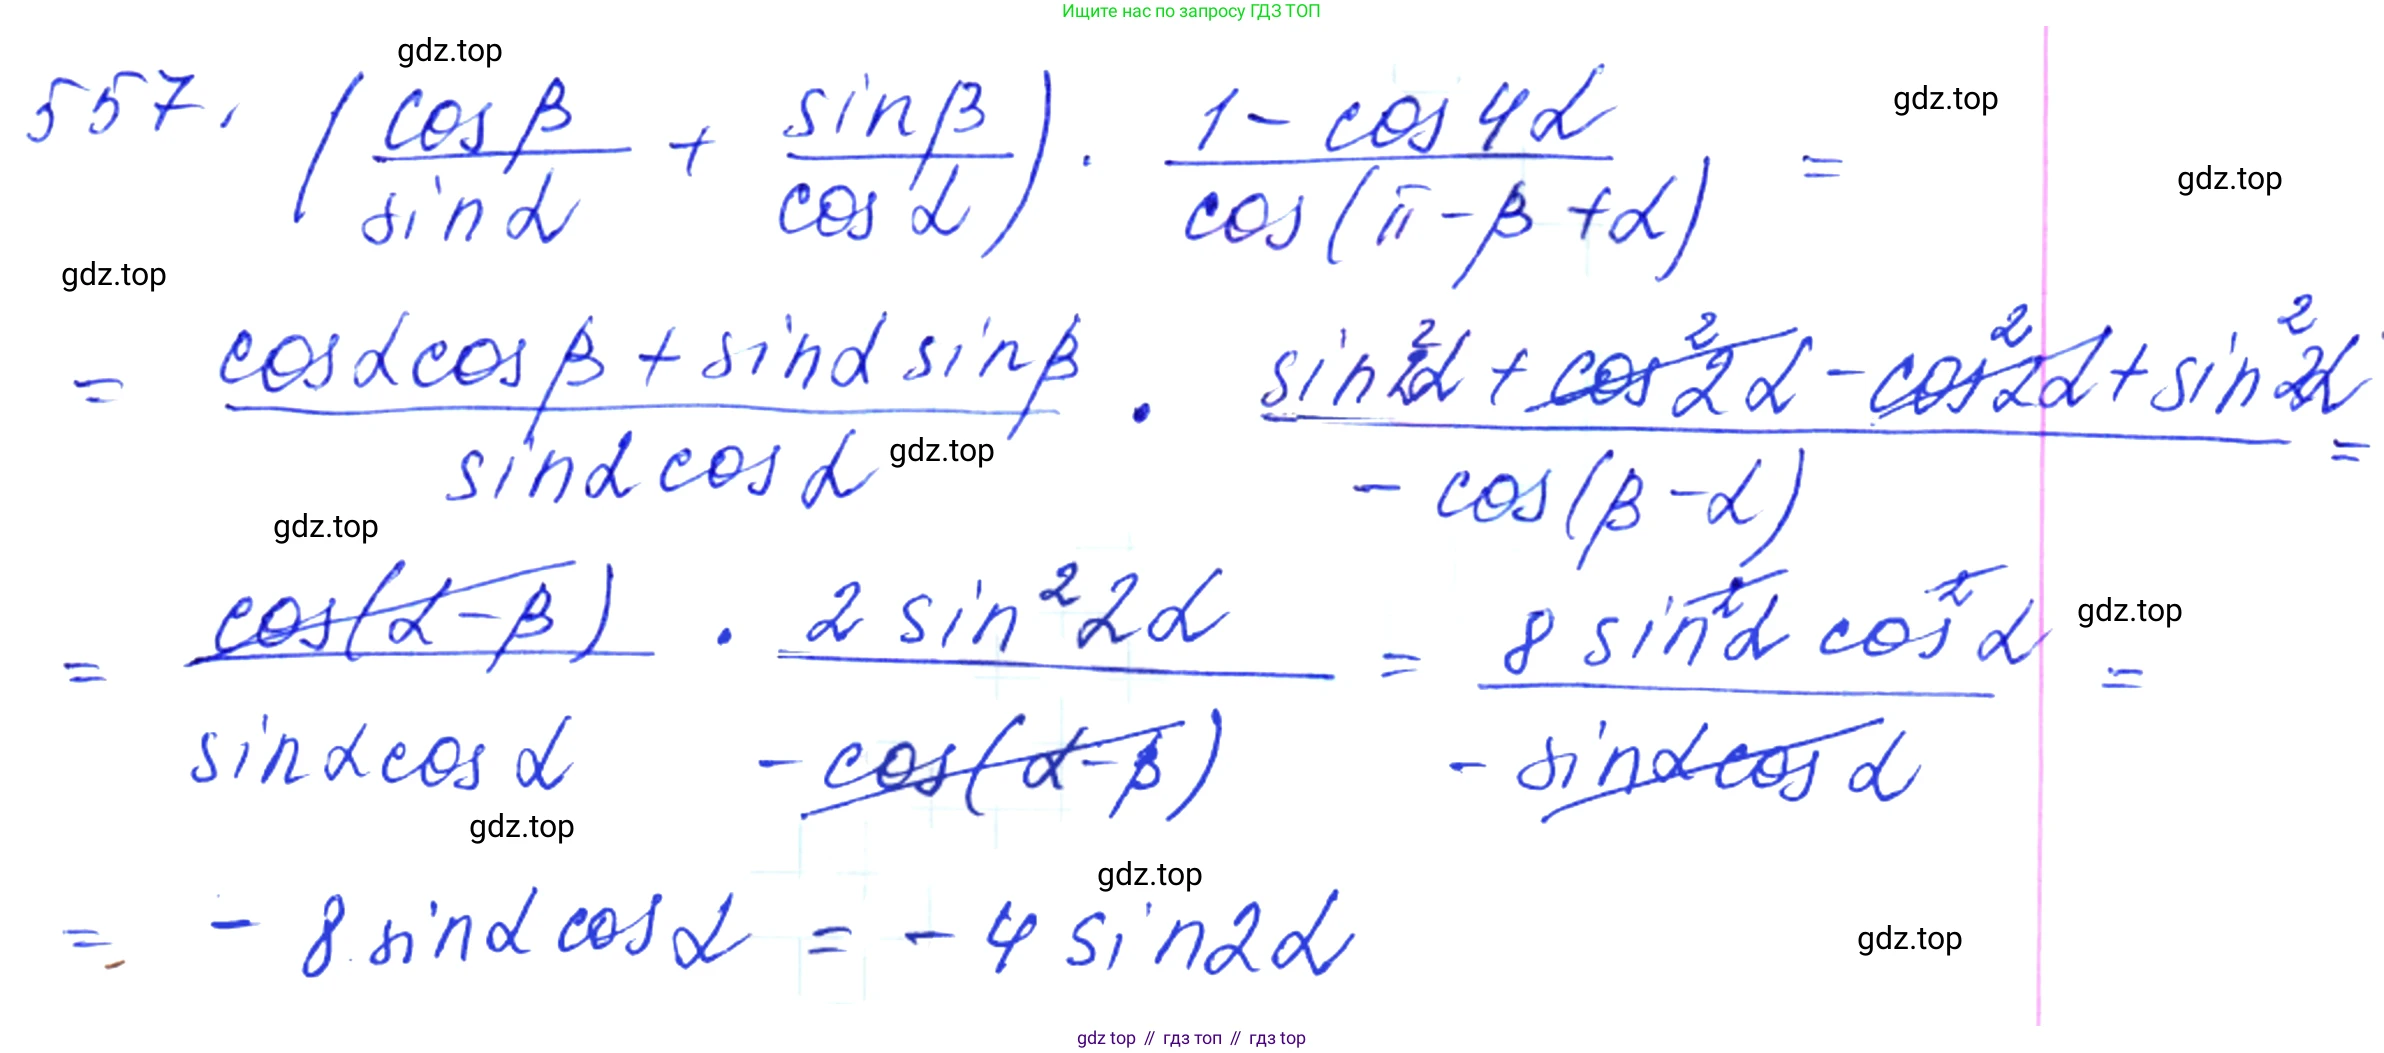 Ищите нас по запросу ГДЗ ТОП
gdz.top
557. (cos β / sin α + sin β / cos α) · (1 - cos 4α) / cos(π - β + α) =
gdz.top
gdz.top
gdz.top
= (cos α cos β + sin α sin β) / (sin α cos α) · (sin² 2α + cos² 2α - cos² 2α + sin² 2α) / (- cos(β - α)) =
gdz.top
gdz.top
= cos(α - β) / (sin α cos α) · 2 sin² 2α / (- cos(α - β)) = 8 sin² α cos² α / (- sin α cos α) =
gdz.top
gdz.top
gdz.top
= - 8 sin α cos α = - 4 sin 2α
gdz.top
gdz top // гдз топ // гдз top